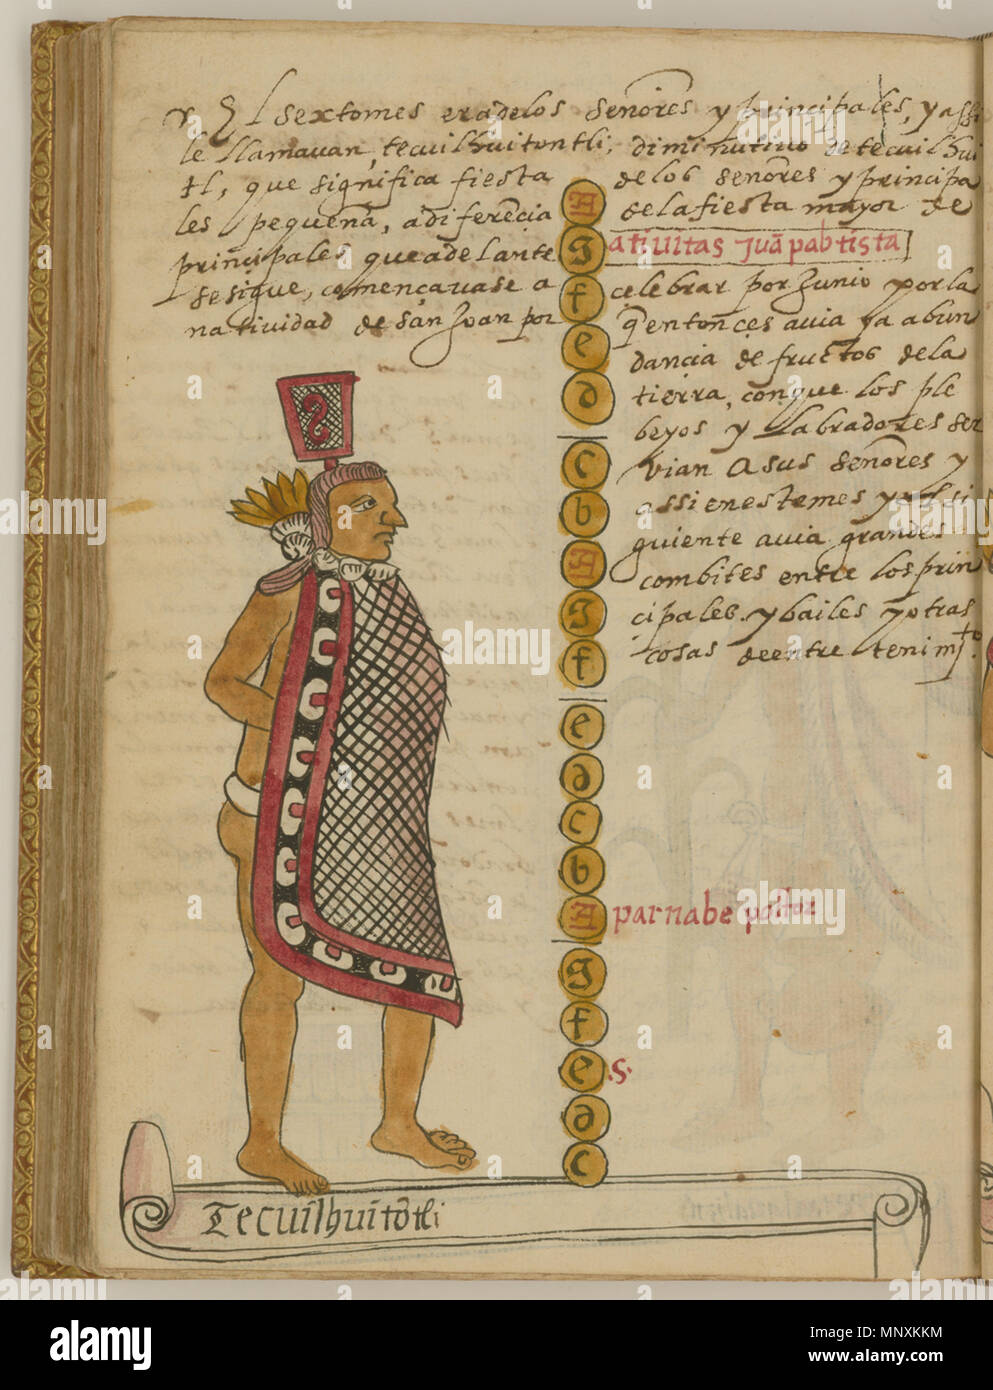 El sexto mes era de los señores y principales, y assi
le llamavan, tecuilhuitontli, diminutivo de tecuilhui
tl, que significa fiesta de los señores y principa
les pequeña, a diferencia A de la fiesta mayor de
principales que adelante g ativitas Juã pabtista
se sigue, començavase a f celebrar por Junio y por la
natividad de San Joan por q̃ entonces avia ya abun
e dancia de fructos de la
d tierra, con que los ple
beyos y labradores ser
c vian a sus señores y
b assi en este mes y el si
guiente avia grandes
A combites entre los prin
g cipales. y bailes y otras
f cosas de entretenimto.
e
d
c
b
A parnabe postor
g
f
e .S.
d
c
Tecuilhuitõtli
alamy
Image ID: MNXKKM
www.alamy.com